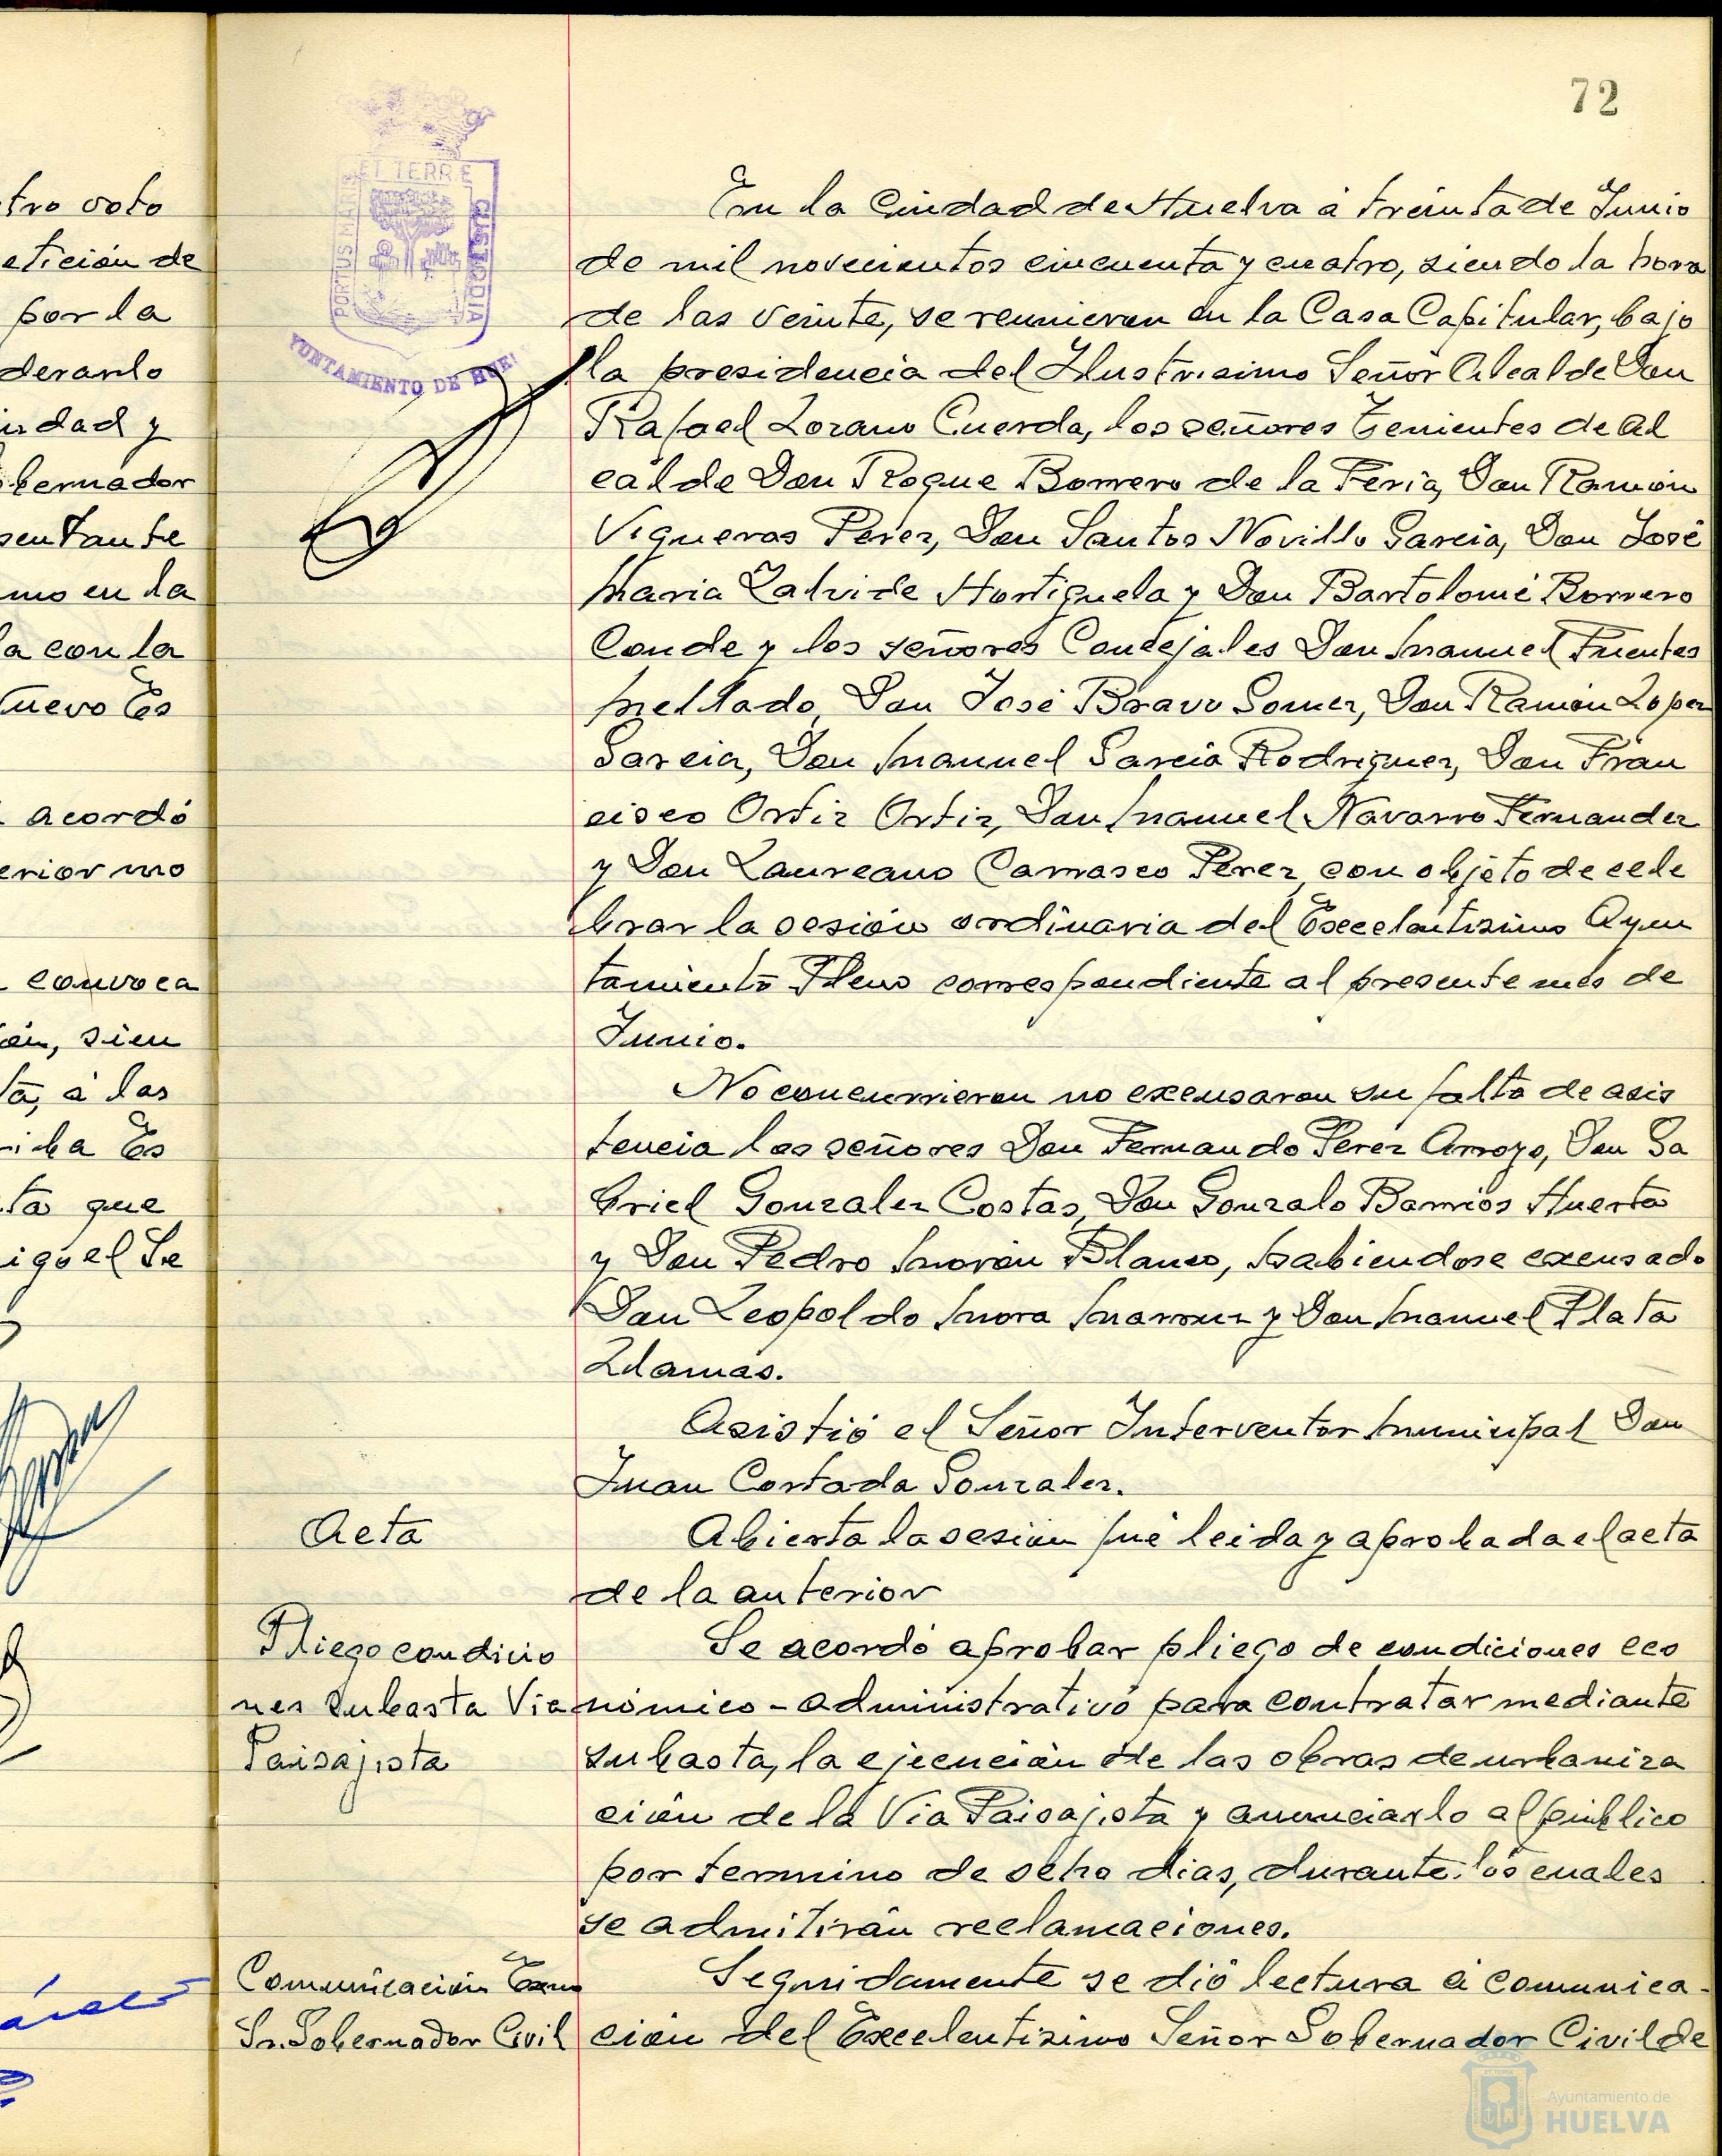 72
tro voto
etición de
por la
derarlo
udad y
bernador
sentante
mo en la
a con la
nuevo Es
acordó
erior mo
convoca
ón, sien
tá, á las
riba Es
ta que
igo el Se
PORTUS MARIS ET TERRE CUSTODIA
YUNTAMIENTO DE HUE
En la Ciudad de Huelva á treinta de Junio
de mil novecientos cincuenta y cuatro, siendo la hora
de las veinte, se reunieron en la Casa Capitular, bajo
la presidencia del Ilustrisimo Señor Alcalde Don
Rafael Lozano Cuerda, los señores Tenientes de Al
calde Don Roque Borrero de la Feria, Don Ramón
Vigueras Perez, Don Santos Novillo Garcia, Don José
Maria Zalvide Hortiguela y Don Bartolomé Borrero
Conde y los señores Concejales Don Manuel Fuentes
Mellado, Don José Bravo Gomez, Don Ramón Lopez
Garcia, Don Manuel Garcia Rodriguez, Don Fran
cisco Ortiz Ortiz, Don Manuel Navarro Fernandez
y Don Laureano Carrasco Perez, con objeto de cele
brar la sesión ordinaria del Excelentisimo Ayun
tamiento Pleno correspondiente al presente mes de
Junio.
No concurrieron no excusaron su falta de asis
tencia los señores Don Fernando Perez Arroyo, Don Ga
briel Gonzalez Costas, Don Gonzalo Barrios Huerta
y Don Pedro Morón Blanco, habiendose excusado
Don Leopoldo Mora Marrouz y Don Manuel Plata
Ldamas.
Asistió el Señor Interventor Municipal Don
Juan Cortada Gonzalez.
Acta
Abierta la sesion fué leida y aprobada el acta
de la anterior
Pliego condicio
nes subasta Via
Paisajista
Se acordó aprobar pliego de condiciones eco
nómico-administrativo para contratar mediante
subasta, la ejecución de las obras de urbaniza
ción de la Via Paisajista y anunciarlo al público
por termino de ocho dias, durante los cuales
se admitirán reclamaciones.
Comunicación Exmo
Sr. Gobernador Civil
Seguidamente se dió lectura á comunica-
ción del Excelentisimo Señor Gobernador Civil de
Ayuntamiento de
HUELVA